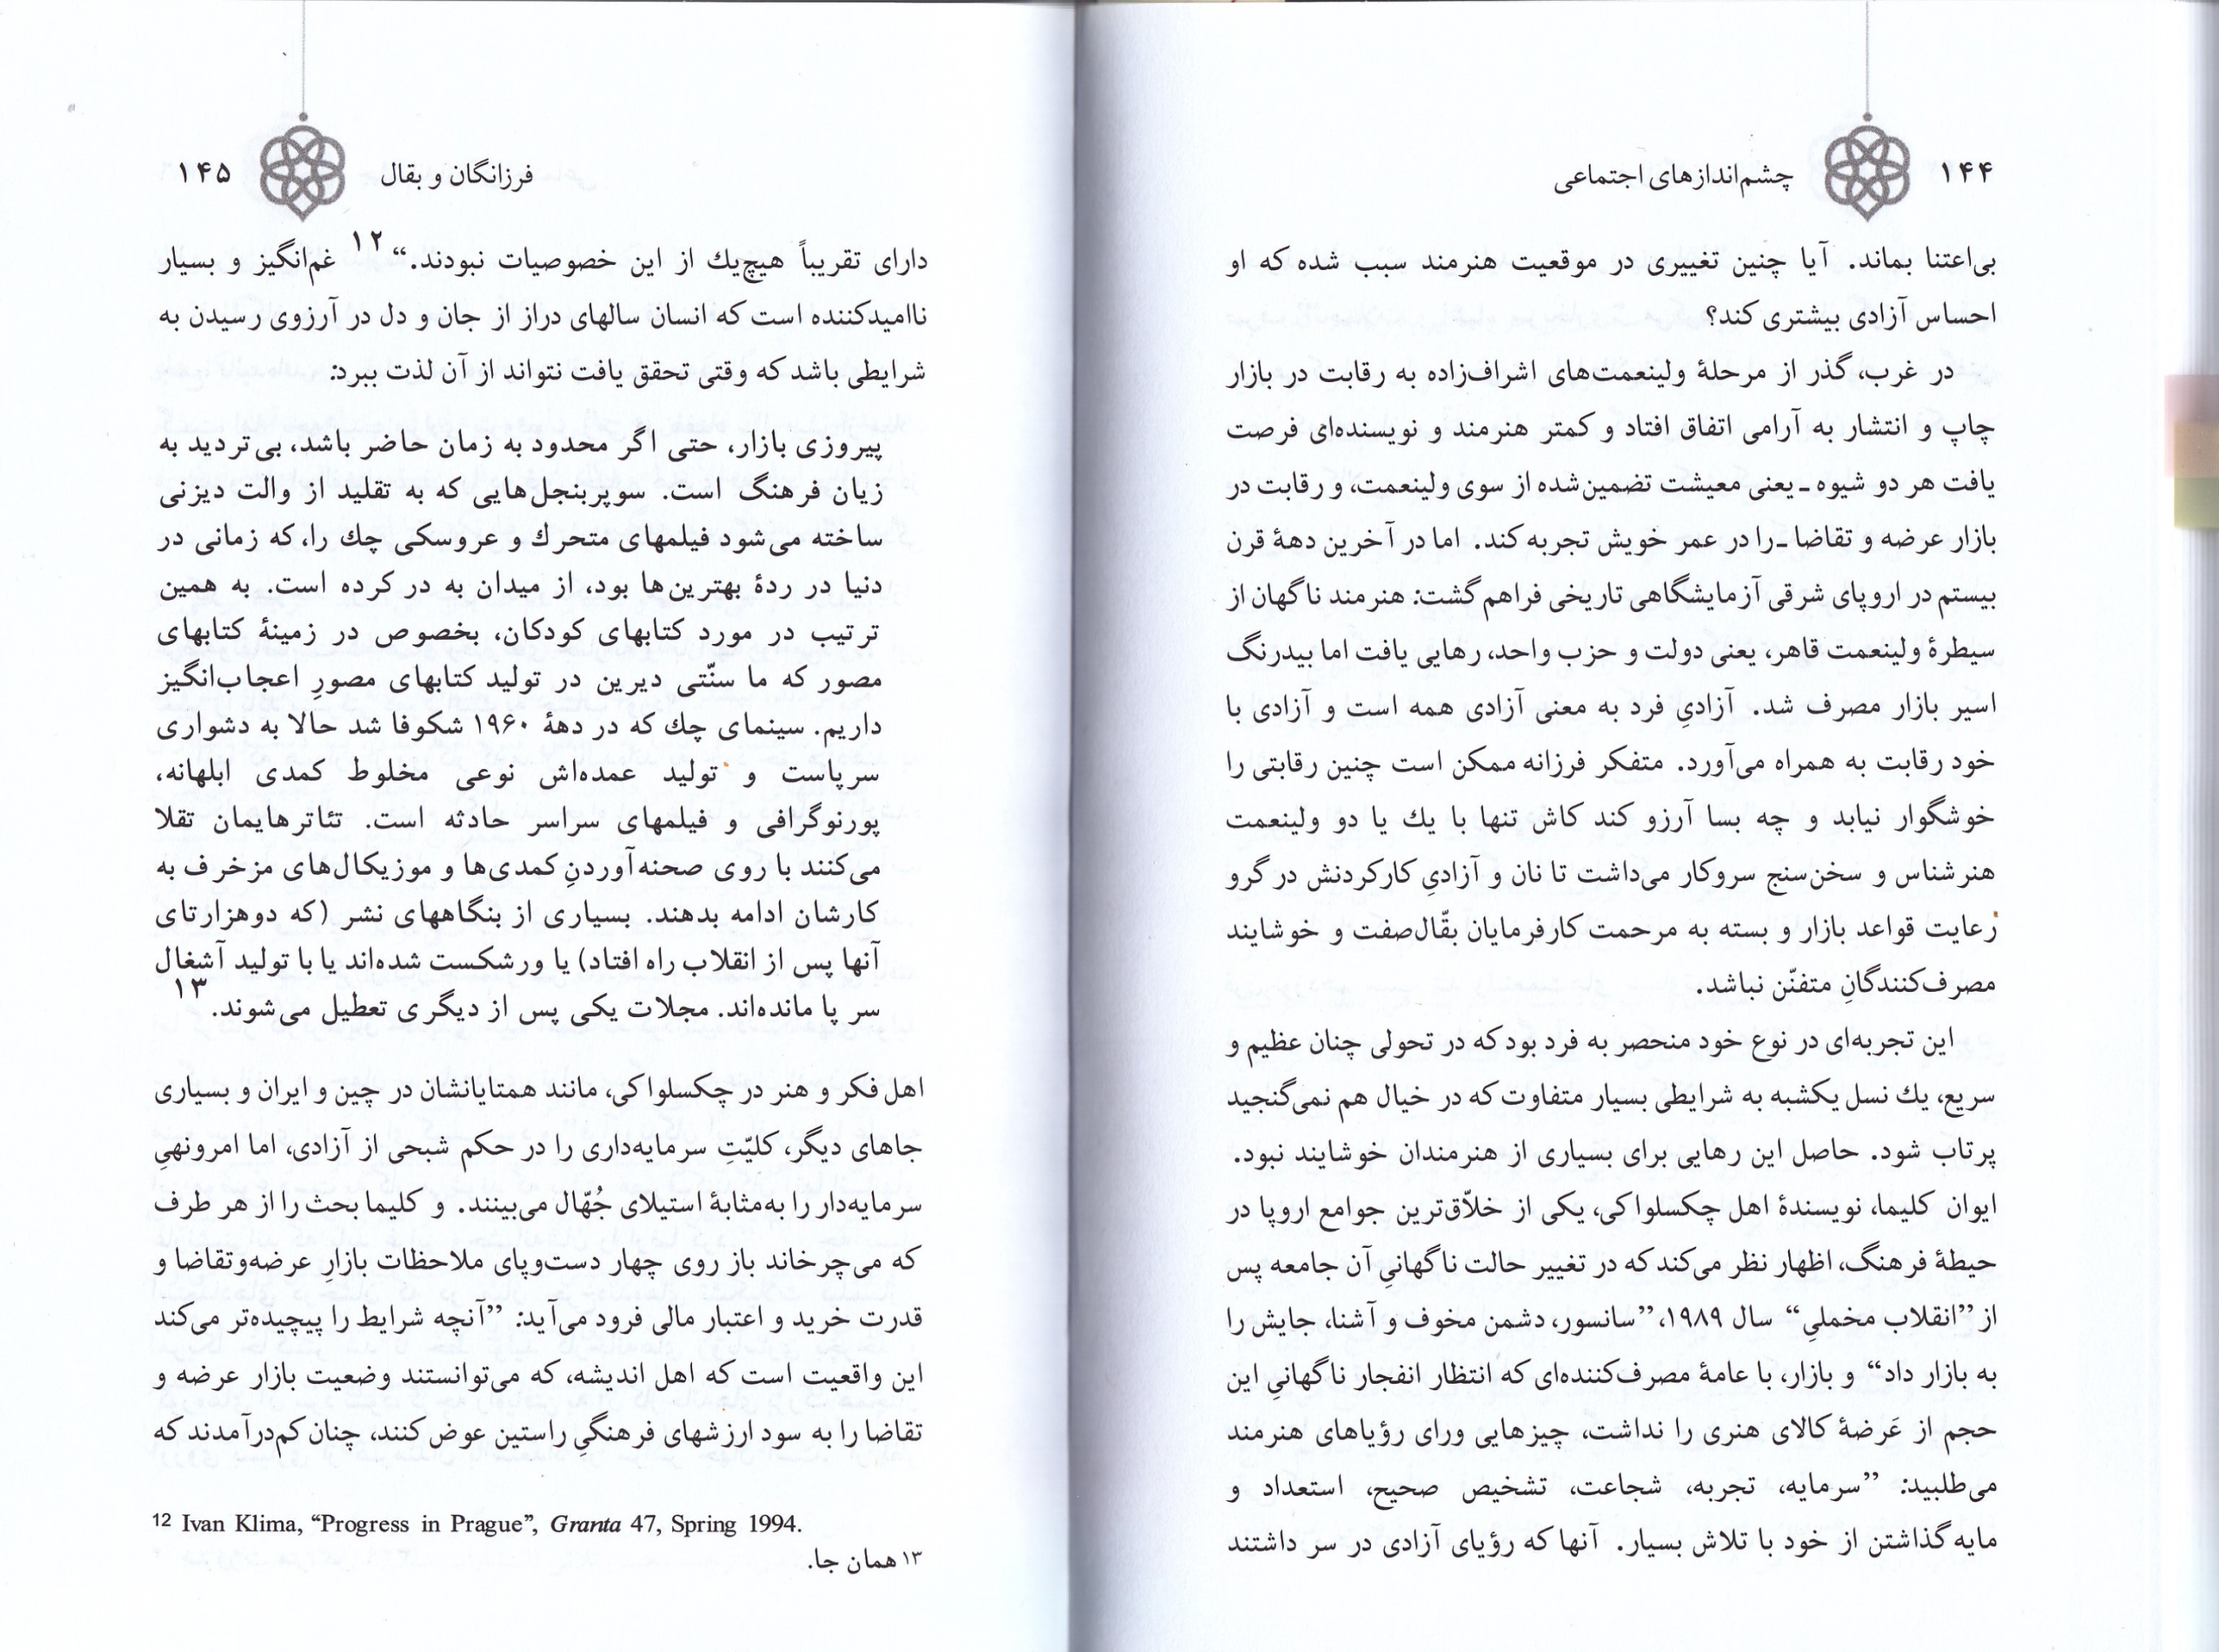 ۱۴۴ چشم‌اندازهای اجتماعی
بی‌اعتنا بماند. آیا چنین تغییری در موقعیت هنرمند سبب شده که او
احساس آزادی بیشتری کند؟
در غرب، گذر از مرحلهٔ ولینعمت‌های اشراف‌زاده به رقابت در بازار
چاپ و انتشار به آرامی اتفاق افتاد و کمتر هنرمند و نویسنده‌ای فرصت
یافت هر دو شیوه ـ یعنی معیشت تضمین‌شده از سوی ولینعمت، و رقابت در
بازار عرضه و تقاضا ـ را در عمر خویش تجربه کند. اما در آخرین دههٔ قرن
بیستم در اروپای شرقی آزمایشگاهی تاریخی فراهم گشت: هنرمند ناگهان از
سیطرهٔ ولینعمت قاهر، یعنی دولت و حزب واحد، رهایی یافت اما بیدرنگ
اسیر بازار مصرف شد. آزادیِ فرد به معنی آزادی همه است و آزادی با
خود رقابت به همراه می‌آورد. متفکر فرزانه ممکن است چنین رقابتی را
خوشگوار نیابد و چه بسا آرزو کند کاش تنها با یك یا دو ولینعمت
هنرشناس و سخن‌سنج سروکار می‌داشت تا نان و آزادیِ کارکردنش در گرو
رعایت قواعد بازار و بسته به مرحمت کارفرمایان بقّال‌صفت و خوشایند
مصرف‌کنندگانِ متفنّن نباشد.
این تجربه‌ای در نوع خود منحصر به فرد بود که در تحولی چنان عظیم و
سریع، یك نسل یکشبه به شرایطی بسیار متفاوت که در خیال هم نمی‌گنجید
پرتاب شود. حاصل این رهایی برای بسیاری از هنرمندان خوشایند نبود.
ایوان کلیما، نویسندهٔ اهل چکسلواکی، یکی از خلاّق‌ترین جوامع اروپا در
حیطهٔ فرهنگ، اظهار نظر می‌کند که در تغییر حالت ناگهانیِ آن جامعه پس
از ”انقلاب مخملیِ“ سال ۱۹۸۹، ”سانسور، دشمن مخوف و آشنا، جایش را
به بازار داد“ و بازار، با عامهٔ مصرف‌کننده‌ای که انتظار انفجار ناگهانیِ این
حجم از عَرضهٔ کالای هنری را نداشت، چیزهایی ورای رؤیاهای هنرمند
می‌طلبید: ”سرمایه، تجربه، شجاعت، تشخیص صحیح، استعداد و
مایه گذاشتن از خود با تلاش بسیار. آنها که رؤیای آزادی در سر داشتند
فرزانگان و بقال ۱۴۵
دارای تقریباً هیچ‌یك از این خصوصیات نبودند.“ ۱۲ غم‌انگیز و بسیار
ناامیدکننده است که انسان سالهای دراز از جان و دل در آرزوی رسیدن به
شرایطی باشد که وقتی تحقق یافت نتواند از آن لذت ببرد:
پیروزی بازار، حتی اگر محدود به زمان حاضر باشد، بی‌تردید به
زیان فرهنگ است. سوپربنجل‌هایی که به تقلید از والت دیزنی
ساخته می‌شود فیلمهای متحرك و عروسکی چك را، که زمانی در
دنیا در ردهٔ بهترین‌ها بود، از میدان به در کرده است. به همین
ترتیب در مورد کتابهای کودکان، بخصوص در زمینهٔ کتابهای
مصور که ما سنّتی دیرین در تولید کتابهای مصورِ اعجاب‌انگیز
داریم. سینمای چك که در دههٔ ۱۹۶۰ شکوفا شد حالا به دشواری
سرپاست و تولید عمده‌اش نوعی مخلوط کمدی ابلهانه،
پورنوگرافی و فیلمهای سراسر حادثه است. تئاترهایمان تقلا
می‌کنند با روی صحنه‌آوردنِ کمدی‌ها و موزیکال‌های مزخرف به
کارشان ادامه بدهند. بسیاری از بنگاههای نشر (که دوهزارتای
آنها پس از انقلاب راه افتاد) یا ورشکست شده‌اند یا با تولید آشغال
سر پا مانده‌اند. مجلات یکی پس از دیگری تعطیل می‌شوند. ۱۳
اهل فکر و هنر در چکسلواکی، مانند همتایانشان در چین و ایران و بسیاری
جاهای دیگر، کلیّتِ سرمایه‌داری را در حکم شبحی از آزادی، اما امرونهیِ
سرمایه‌دار را به‌مثابهٔ استیلای جُهّال می‌بینند. و کلیما بحث را از هر طرف
که می‌چرخاند باز روی چهار دست‌وپای ملاحظات بازارِ عرضه‌وتقاضا و
قدرت خرید و اعتبار مالی فرود می‌آید: ”آنچه شرایط را پیچیده‌تر می‌کند
این واقعیت است که اهل اندیشه، که می‌توانستند وضعیت بازار عرضه و
تقاضا را به سود ارزشهای فرهنگیِ راستین عوض کنند، چنان کم‌درآمدند که
12 Ivan Klima, “Progress in Prague”, Granta 47, Spring 1994.
۱۳ همان جا.